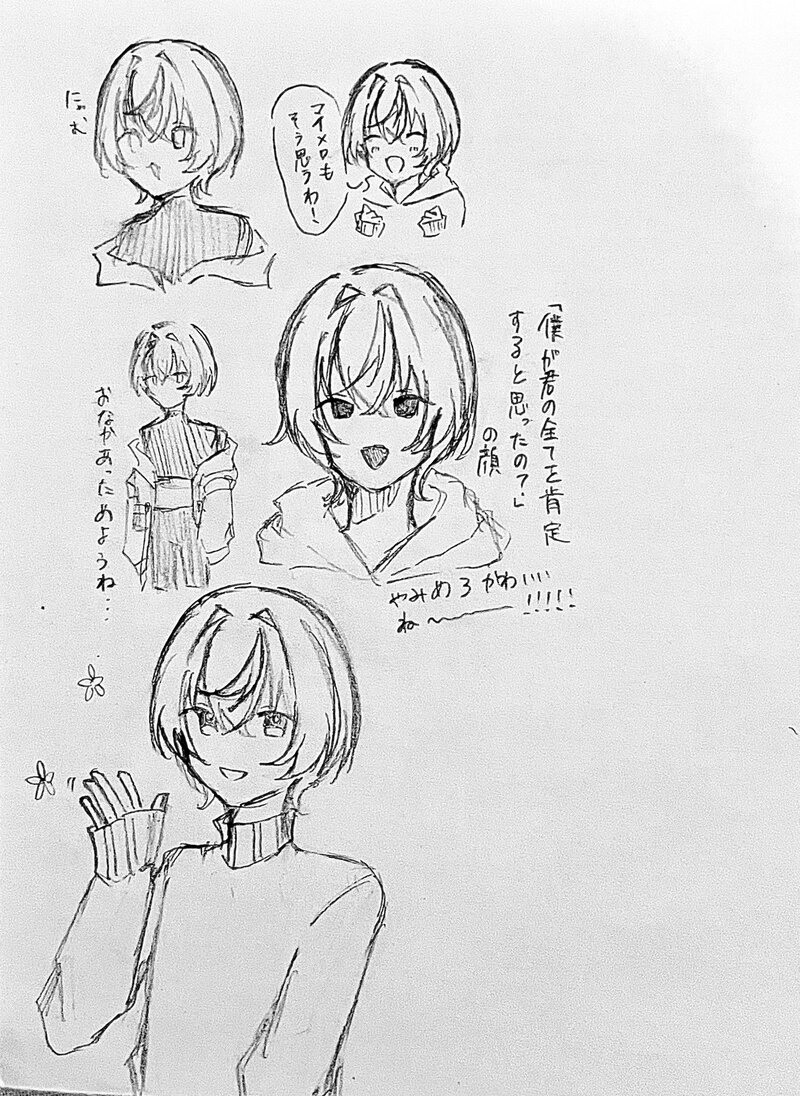 にゃむ
マイメロも
そう思うわ！
「僕が君の全てを肯定
すると思ったの？」
の顔
おなかあっためようね…
やみめろがわいい
ね〜!!!!!